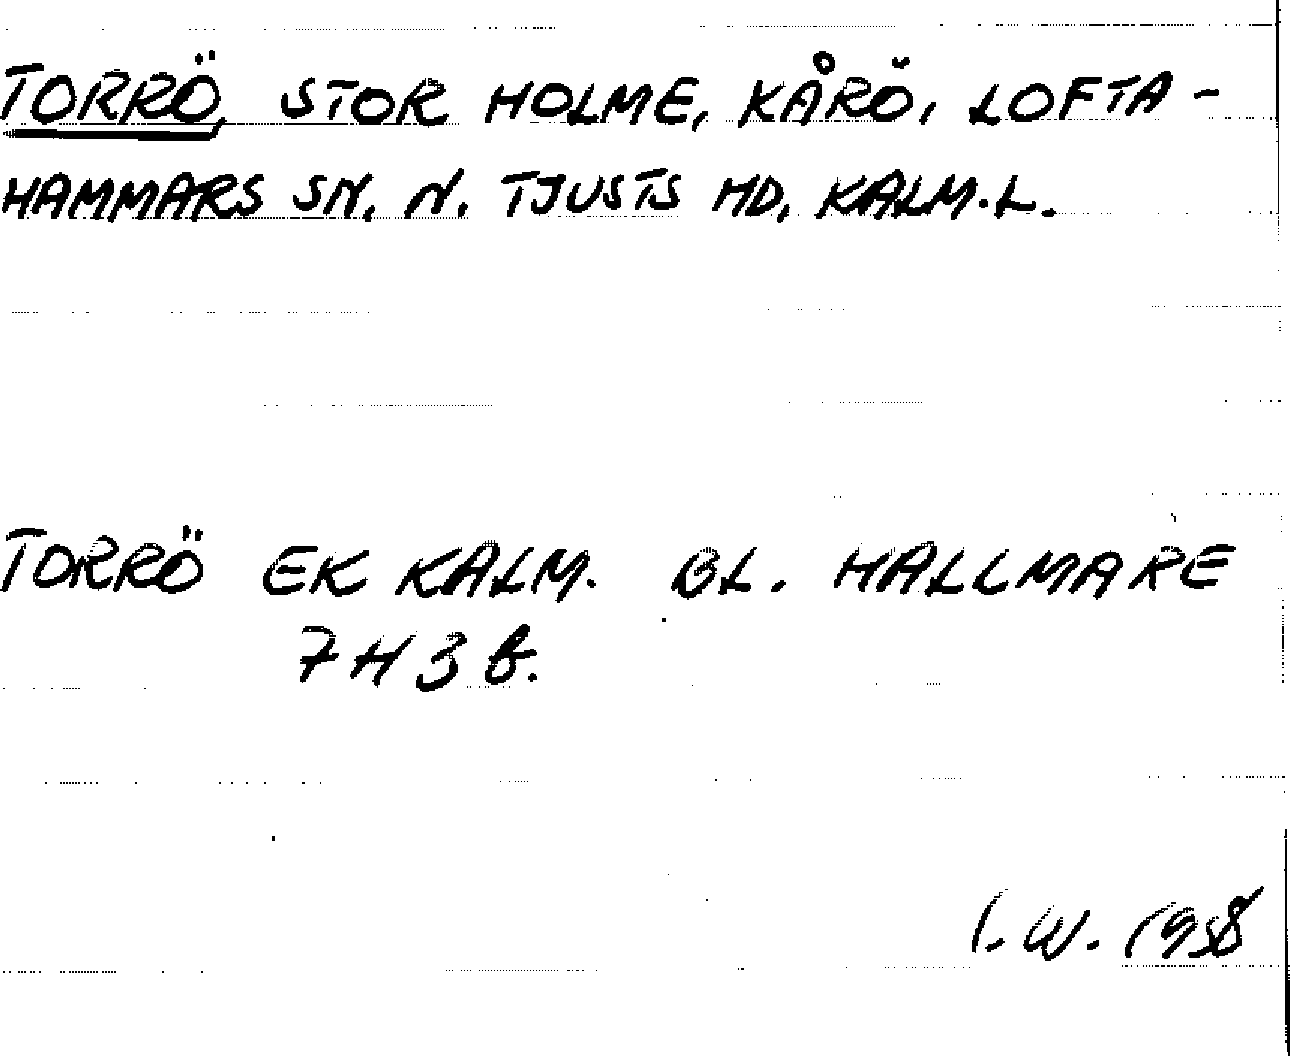 TORRÖ, STOR HOLME, KÅRÖ, LOFTA-
HAMMARS SN. N. TJUSTS HD, KALM.L.
TORRÖ EK KALM. BL. HALLMARE
7H3b.
I.W. 1958